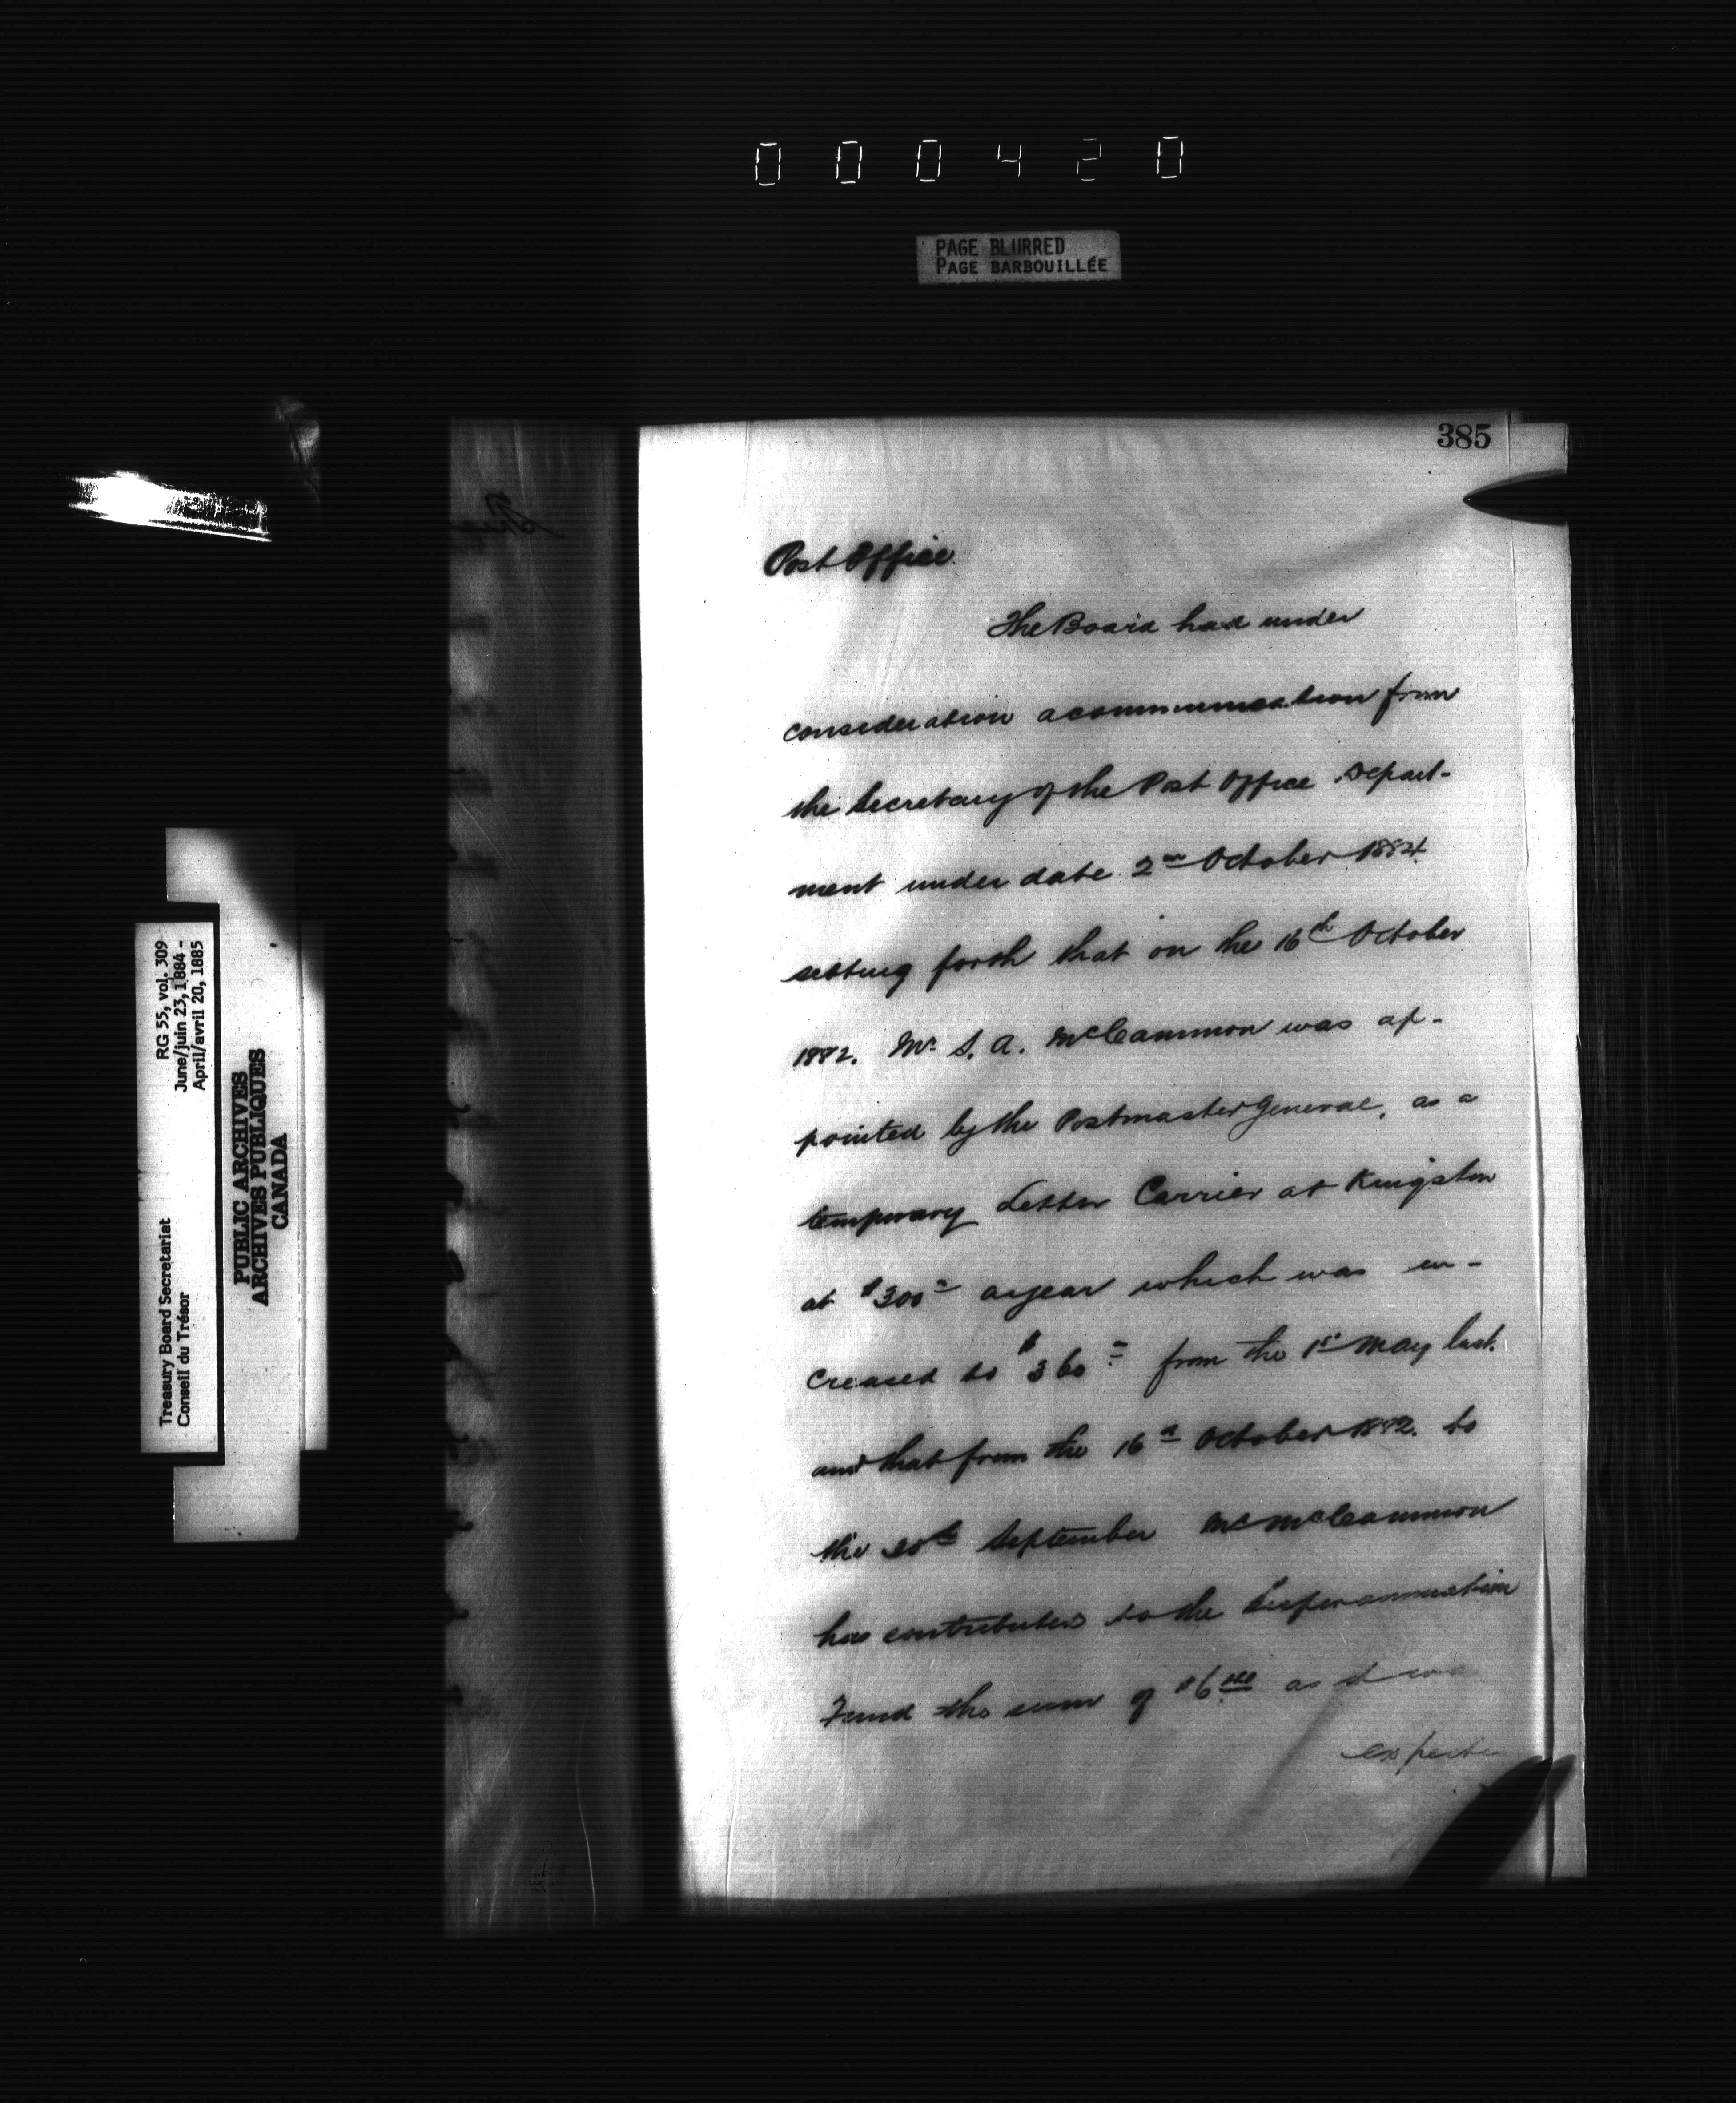 000420
PAGE BLURRED
PAGE BARBOUILLÉE
385
Post Office
The Board had under
consideration a communication from
the Secretary of the Post Office Depart-
ment under date 2nd October 1884
setting forth that on the 16th October
1882. Mr. S. A. McCammon was ap-
pointed by the Postmaster General, as a
temporary Letter Carrier at Kingston
at $300 a year which was in-
creased to $360 from the 1st May last.
and that from the 16th October 1882. to
the 30th September Mr McCammon
has contributed to the Superannuation
Fund the sum of $6 as it was
RG 55, vol. 309
June/juin 23, 1884 -
April/avril 20, 1885
Treasury Board Secretariat
Conseil du Trésor
PUBLIC ARCHIVES
ARCHIVES PUBLIQUES
CANADA